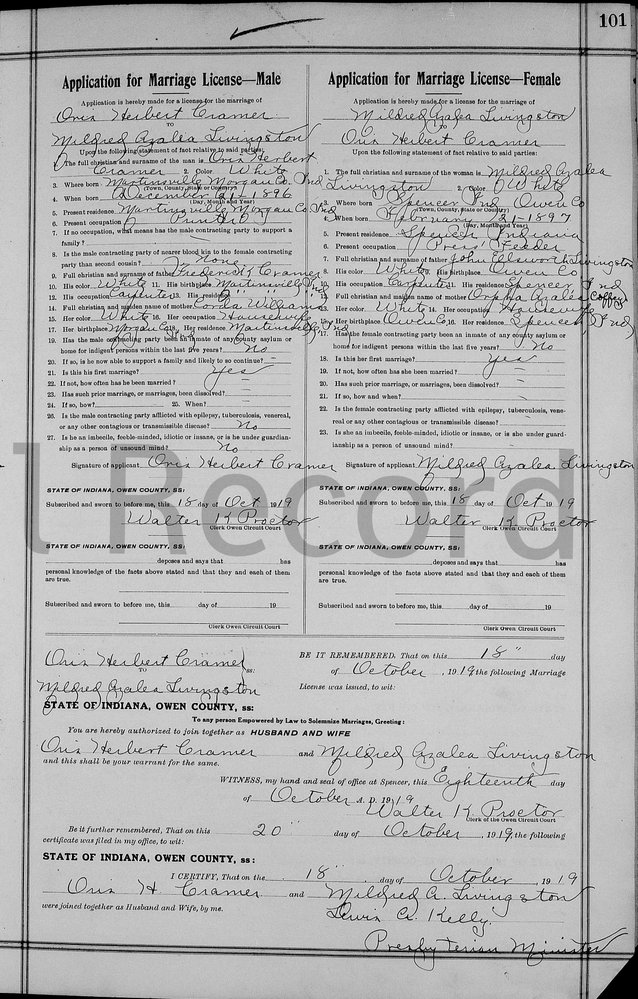 101
Application for Marriage License—Male
Application is hereby made for a license for the marriage of
Oris Herbert Cramer
TO
Mildred Azalea Livingston
Upon the following statement of fact relative to said parties:
1. The full christian and surname of the man is Oris Herbert
Cramer 2. Color White
3. Where born Martinsville Morgan Co. Ind
(Town, County, State or Country)
4. When born December 1896
(Day, Month and Year)
5. Present residence Martinsville Morgan Co. Ind
6. Present occupation Printer
7. If no occupation, what means has the male contracting party to support a
family?
8. Is the male contracting party of nearer blood kin to the female contracting
party than second cousin? None
9. Full christian and surname of father Frederick Cramer
10. His color White 11. His birthplace Martinsville, Ind
12. His occupation Carpenter 13. His residence " "
14. Full christian and maiden name of mother Williams
15. Her color White 16. Her occupation Housewife
17. Her birthplace Morgan Co. 18. Her residence Martinsville, Ind
19. Has the male contracting party been an inmate of any county asylum or
home for indigent persons within the last five years? No
20. If so, is he now able to support a family and likely to so continue?
21. Is this his first marriage? Yes
22. If not, how often has he been married?
23. Has such prior marriage, or marriages, been dissolved?
24. If so, how? 25. When?
26. Is the male contracting party afflicted with epilepsy, tuberculosis, venereal,
or any other contagious or transmissible disease? No
27. Is he an imbecile, feeble-minded, idiotic or insane, or is he under guardian-
ship as a person of unsound mind? No
Signature of applicant Oris Herbert Cramer
STATE OF INDIANA, OWEN COUNTY, SS:
Subscribed and sworn to before me, this 18 day of Oct 1919
Walter K. Proctor
Clerk Owen Circuit Court
STATE OF INDIANA, OWEN COUNTY, SS:
deposes and says that has
personal knowledge of the facts above stated and that they and each of them
are true.
Subscribed and sworn to before me, this day of 19
Clerk Owen Circuit Court
Application for Marriage License—Female
Application is hereby made for a license for the marriage of
Mildred Azalea Livingston
TO
Oris Herbert Cramer
Upon the following statement of fact relative to said parties:
1. The full christian and surname of the woman is Mildred Azalea
Livingston 2. Color White
3. Where born Spencer Ind Owen Co
(Town, County, State or Country)
4. When born February 21-1897
(Day, Month and Year)
5. Present residence Spencer Indiana
6. Present occupation Press Feeder
7. Full christian and surname of father John Elsworth Livingston
8. His color White 9. His birthplace Owen Co
10. His occupation Carpenter 11. His residence Spencer Ind
12. Full christian and maiden name of mother Orpha Azalea Coffey
13. Her color White 14. Her occupation Housewife
15. Her birthplace Owen Co 16. Her residence Spencer Ind
17. Has the female contracting party been an inmate of any county asylum or
home for indigent persons within the last five years? No
18. Is this her first marriage? Yes
19. If not, how often has she been married?
20. Has such prior marriage, or marriages, been dissolved?
21. If so, how and when?
22. Is the female contracting party afflicted with epilepsy, tuberculosis, vene-
real or any other contagious or transmissible disease?
23. Is she an imbecile, feeble-minded, idiotic or insane, or is she under guard-
ianship as a person of unsound mind?
Signature of applicant Mildred Azalea Livingston
STATE OF INDIANA, OWEN COUNTY, SS:
Subscribed and sworn to before me, this 18 day of Oct 1919
Walter K. Proctor
Clerk Owen Circuit Court
STATE OF INDIANA, OWEN COUNTY, SS:
deposes and says that has
personal knowledge of the facts above stated and that they and each of them
are true.
Subscribed and sworn to before me, this day of 19
Clerk Owen Circuit Court
l Record
Oris Herbert Cramer
TO ss:
Mildred Azalea Livingston
BE IT REMEMBERED, That on this 18" day
of October, 1919 the following Marriage
License was issued, to wit:
STATE OF INDIANA, OWEN COUNTY, ss:
To any person Empowered by Law to Solemnize Marriages, Greeting:
You are hereby authorized to join together as HUSBAND AND WIFE
Oris Herbert Cramer and Mildred Azalea Livingston
and this shall be your warrant for the same.
WITNESS, my hand and seal of office at Spencer, this Eighteenth day
of October A. D. 1919
Walter K. Proctor
Clerk of the Owen Circuit Court
Be it further remembered, That on this 20" day of October, 1919, the following
certificate was filed in my office, to wit:
STATE OF INDIANA, OWEN COUNTY, ss:
I CERTIFY, That on the 18" day of October, 1919
Oris H. Cramer and Mildred A. Livingston
were joined together as Husband and Wife, by me.
Lewis A. Kelly
Presbyterian Minister